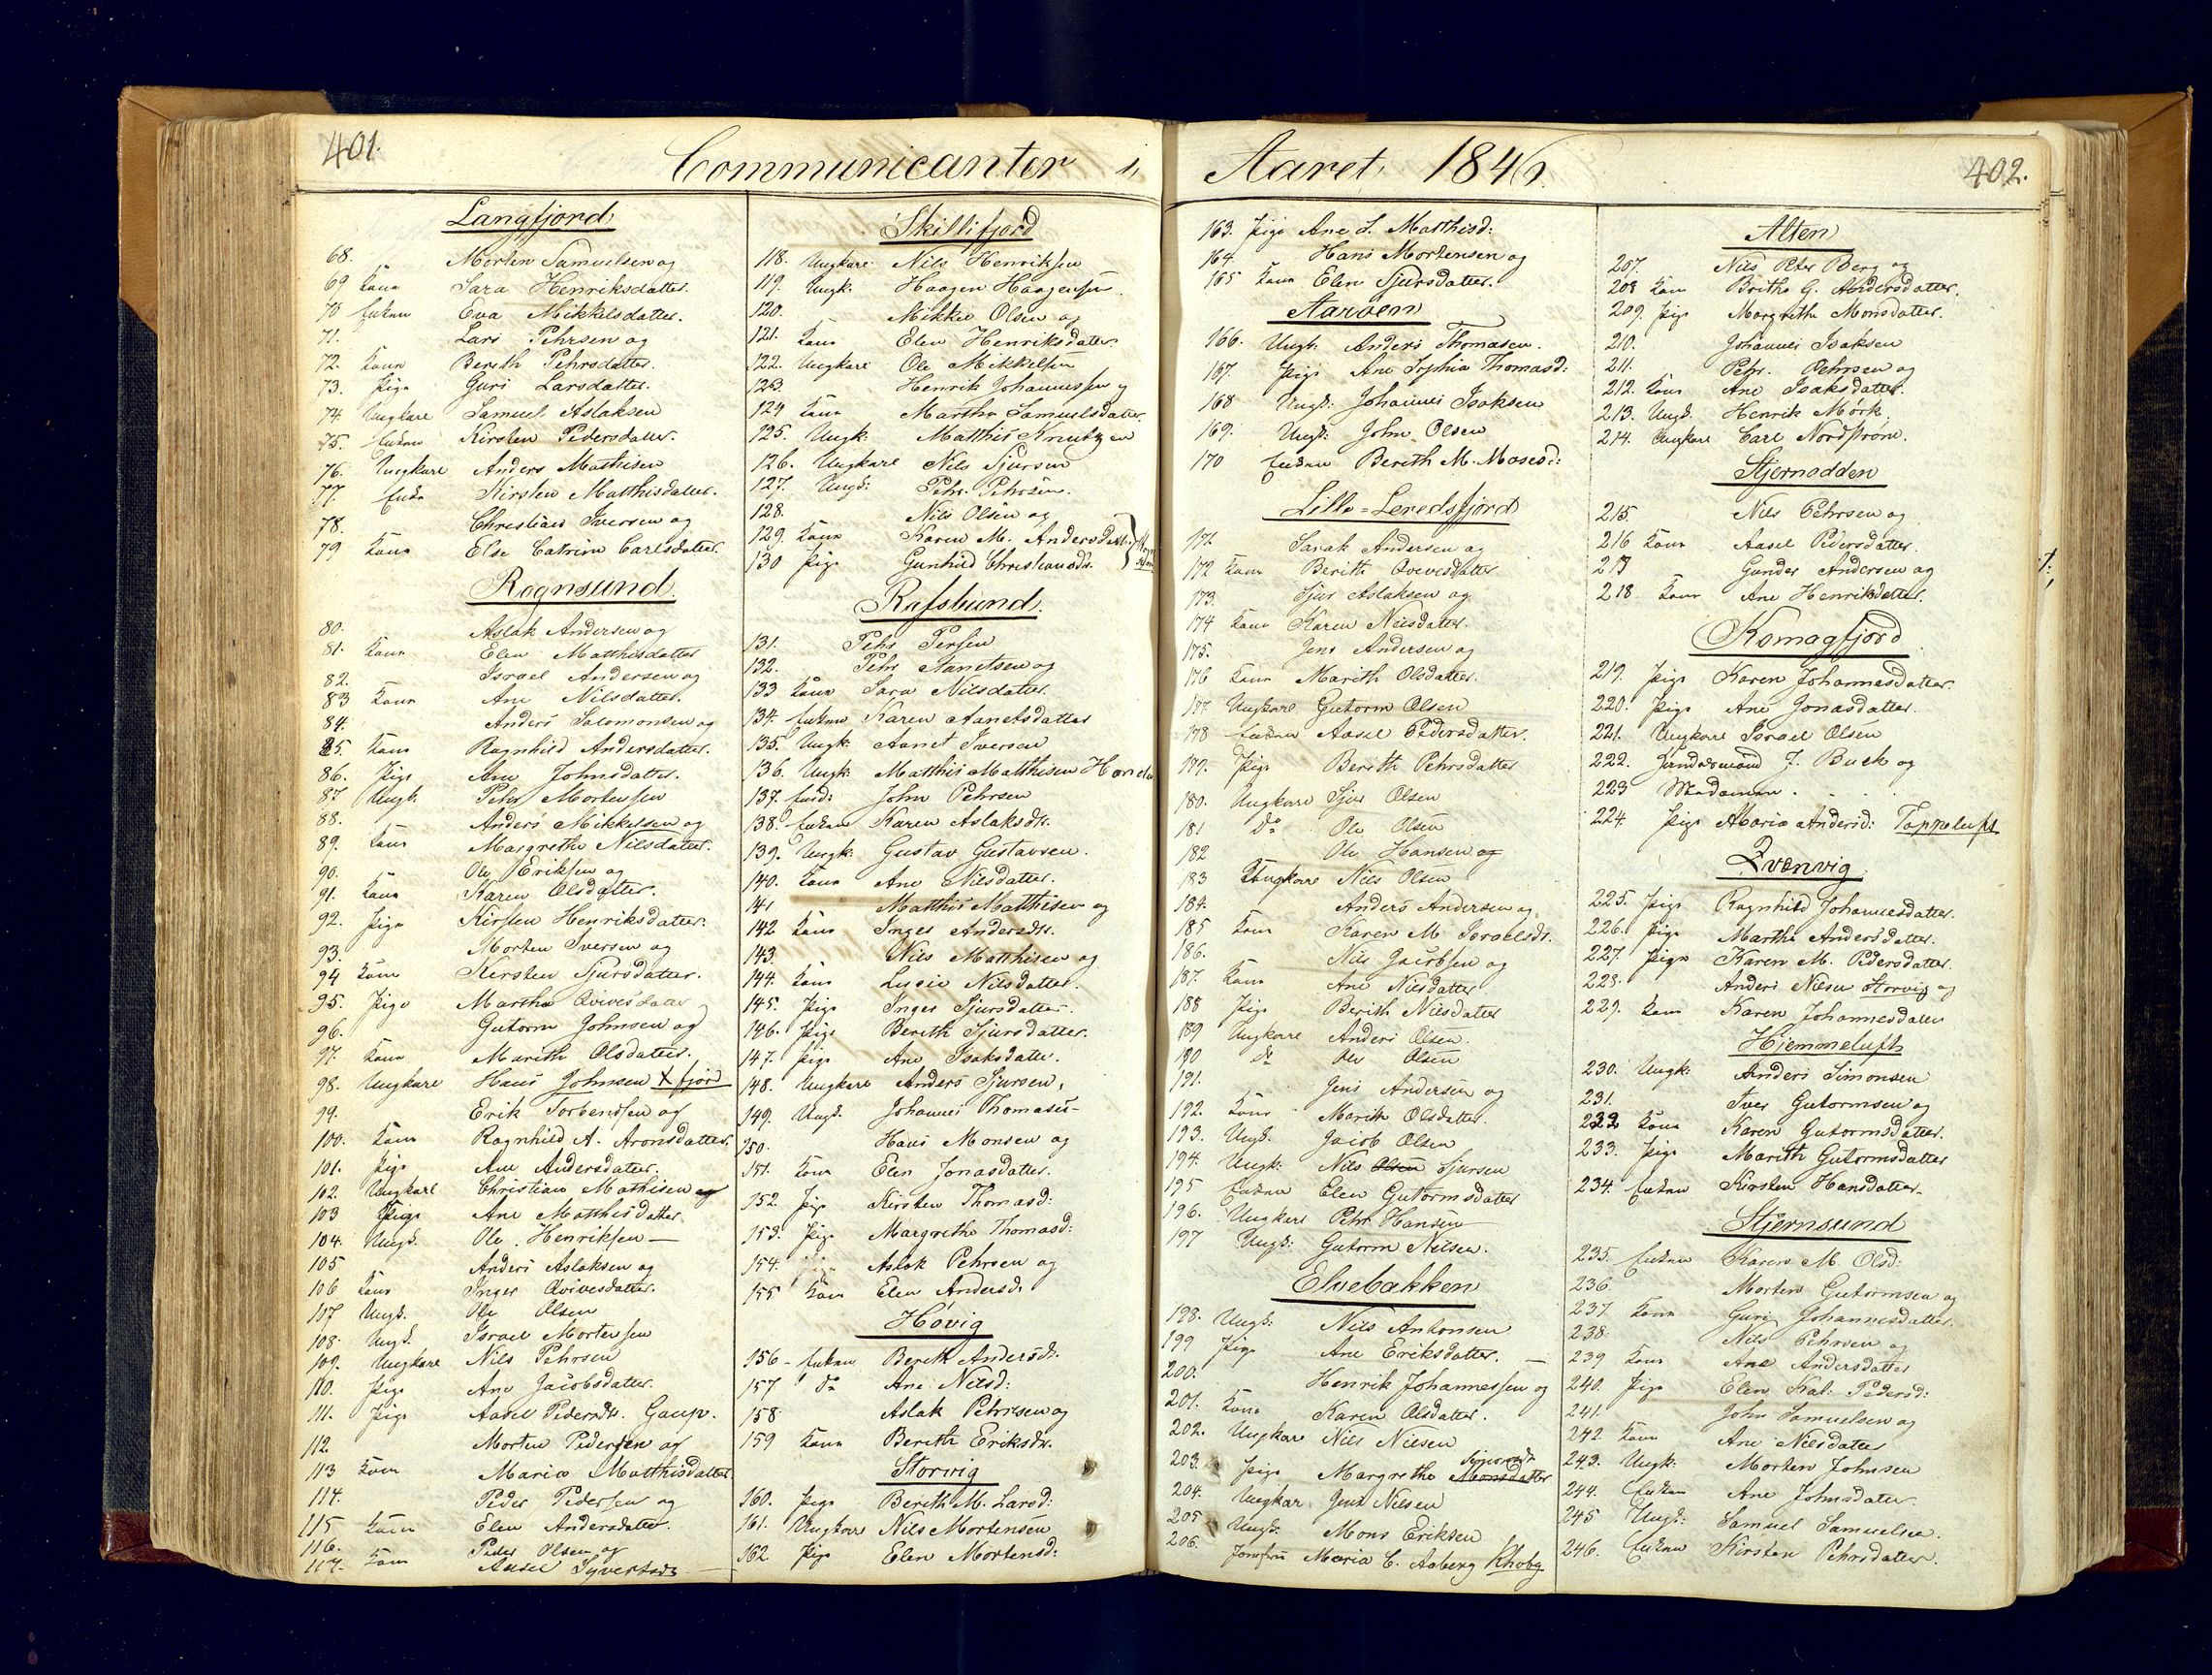 401.
Communicanter i
Langfjord
68. Morten Samuelsen og
69 Kone Sara Henriksdatter.
70 Enken Eva Mikkelsdatter.
71. Lars Pehrsen og
72. Kone Berith Pehrsdatter.
73. Pige Guri Larsdatter.
74. Ungkarl Samuel Aslaksen
75. Enken Kirsten Pedersdatter.
76. Ungkarl Anders Mathisen
77. Enke Kirsten Matthisdatter.
78. Christian Iversen og
79 Kone Else Catrine Carlsdatter.
Rognsund.
80. Aslak Andersen og
81. Kone Elen Matthisdatter
82. Israel Andersen og
83 Kone Ane Nilsdatter.
84. Anders Salomonsen og
85. Kone Ragnhild Andersdatter.
86. Pige Ane Johnsdatter.
87 Ungk. Pehr Mortensen
88. Anders Mikkelsen og
89. Kone Margrethe Nilsdatter.
90. Ole Eriksen og
91. Kone Karen Olsdatter.
92. Pige Kirsten Henriksdatter.
93. Morten Iversen og
94 Kone Kirsten Sjursdatter.
95. Pige Martha Qvivesdatter
96. Gutorm Johnsen og
97. Kone Marith Olsdatter.
98. Ungkarl Hans Johnsen Xfjord
99. Erik Torbensen og
100. Kone Ragnhild A. Aronsdatter.
101. Pige Ane Andersdatter.
102. Ungkarl Christian Mathisen og
103 Pige Ane Matthisdatter.
104. Ungk. Ole Henriksen —
105 Anders Aslaksen og
106 Kone Inger Qvivesdatter.
107 Ungk. Ole Olsen
108. Ungk. Israel Mortensen
109. Ungkarl Nils Pehrsen
110. Pige Ane Jacobsdatter.
111. Pige Aasel Pedersdtr. Gaup.
112. Morten Pedersen og
113 Kone Maria Matthisdatter
114. Peder Pedersen og
115 Kone Elen Andersdatter.
116. Peder Olsen og
117. Kone Aasel Syvertsdtr
Skillifjord
118. Ungkarl Nils Henriksen
119. Ungk. Haagen Haagensen
120. Mikkel Olsen og
121. Kone Elen Henriksdatter.
122. Ungkarl Ole Mikkelsen
123. Henrik Johannessen og
124 Kone Martha Samuelsdatter.
125. Ungk: Matthis Knutzen
126. Ungkarl Nils Sjursen
127. Ungk: Pehr Pehrsen.
128. Nils Olsen og
129. Kone Karen M. Andersdatt.
130 Pige Gunhild Christiansdtr.
Rafsbund.
131. Pehr Persen
132. Pehr Aanetsen og
133 Kone Sara Nilsdatter.
134. Enken Karen Aanetsdatter
135. Ungk: Aanet Iversen
136. Ungk: Matthis Matthisen
137. John Pehrsen
138. Enken Karen Aslaksdtr.
139. Ungk: Gustav Gustavsen.
140. Kone Ane Nilsdatter.
141 Matthis Matthisen og
142 Kone Inger Andersdtr.
143. Nils Matthisen og
144. Kone Lucie Nilsdatter.
145. Pige Inger Sjursdatter.
146. Pige Berith Sjursdatter.
147. Pige Ane Isaksdatter.
148. Ungkarl Anders Sjursen.
149. Ungk. Johannes Thomasen
150. Hans Monsen og
151. Kone Elen Jonasdatter.
152. Pige Kirsten Thomasd:
153. Pige Margrethe Thomasd:
154. Aslak Pehrsen og
155 Kone Elen Andersd.
Høvig
156 - Enken Berith Andersdtr.
157 do Ane Nilsd:
158 Aslak Pehrsen og
159 Kone Berith Eriksdtr.
Storvig
160. Pige Berith M. Larsd:
161. Ungkarl Nils Mortensen
162. Pige Elen Mortensd:
Aaret 1846.
402.
163. Pige Ane L. Matthisd:
164. Hans Mortensen og
165 Kone Elen Sjursdatter.
Aarøen
166. Ungk. Anders Thomasen.
167. Pige Ane Sophia Thomasd:
168 Ungk: Johannes Isaksen
169. Ungk: John Olsen
170 Enken Berith M. Mosesd:
Lille=Leredsfjord
171. Isaak Andersen og
172 Kone Berith Qvivesdatter
173. Sjur Aslaksen og
174 Kone Karen Nilsdatter.
175. Jens Andersen og
176 Kone Marith Olsdatter.
177 Ungkarl Gutorm Olsen
178 Enken Aasel Pedersdatter.
179. Pige Berith Pehrsdatter
180. Ungkarl Sjur Olsen
181 do Ole Olsen
182 Ole Hansen og
183 Ungkarl Nils Olsen
184. Anders Andersen og
185 Kone Karen M Israelsdtr.
186. Nils Jacobsen og
187. Kone Ane Nilsdatter
188 Pige Berith Nilsdatter
189 Ungkarl Anders Olsen.
190 do Ole Olsen
191. Jens Andersen og
192. Kone Marith Olsdatter.
193. Ungk. Jacob Olsen
194. Ungk: Nils Olsen Sjursen
195 Enken Elen Gutormsdatter
196. Ungkarl Pehr Hansen
197 Ungk: Gutorm Nilsen.
Elvebakken
198. Ungk: Nils Antonsen
199 Pige Ane Eriksdatter. —
200. Henrik Johannessen og
201. Kone Karen Olsdatter.
202. Ungkarl Nils Nilsen
203. Pige Margrethe Monsdatter
204. Ungkar Jens Nilsen
205 Ungk. Mons Eriksen
206. Jomfru Maria C. Aaberg
Alten
207. Nils Peter Berg og
208 Kone Brithe G. Andersdatter.
209. Pige Margrethe Monsdatter.
210. Johannes Isaksen
211. Pehr Pehrsen og
212. Kone Ane Isaksdatter.
213. Ungk. Henrik Mørk.
214. Ungkarl Carl Nordstrøm.
Stjernodden
215. Nils Pehrsen og
216 Kone Aasel Pedersdatter.
217 Gunder Andersen og
218. Kone Ane Henriksdatter.
Komagfjord
219. Pige Karen Johannesdatter.
220. Pige Ane Jonasdatter.
221. Ungkarl Israel Olsen
222. Handelsmand J. Buck og
223 Madamen
224. Pige Maria Andersd: Toppeluft
Qvænvig
225. Pige Ragnhild Johannesdatter.
226. Pige Marthe Andersdatter.
227. Pige Karen M. Pedersdatter.
228. Anders Nilsen Storvig og
229. Kone Karen Johannesdatter
Hjemmeluft
230. Ungk: Anders Simonsen
231. Iver Gutormsen og
232 Kone Karen Gutormsdatter.
233. Pige Marith Gutormsdatter
234. Enken Kirsten Hansdatter.
Stjernsund
235. Enken Karen M. Olsd:
236. Morten Gutormsen og
237. Kone Guri Johannesdatter.
238. Nils Pehrsen og
239 Kone Ane Andersdatter
240. Pige Elen Kat. Pedersd:
241. John Samuelsen og
242 Kone Ane Nilsdatter
243. Ungk: Morten Johnsen
244. Enken Ane Johnsdatter.
245 Ungk: Samuel Samuelsen.
246. Enken Kirsten Pehrsdatter.